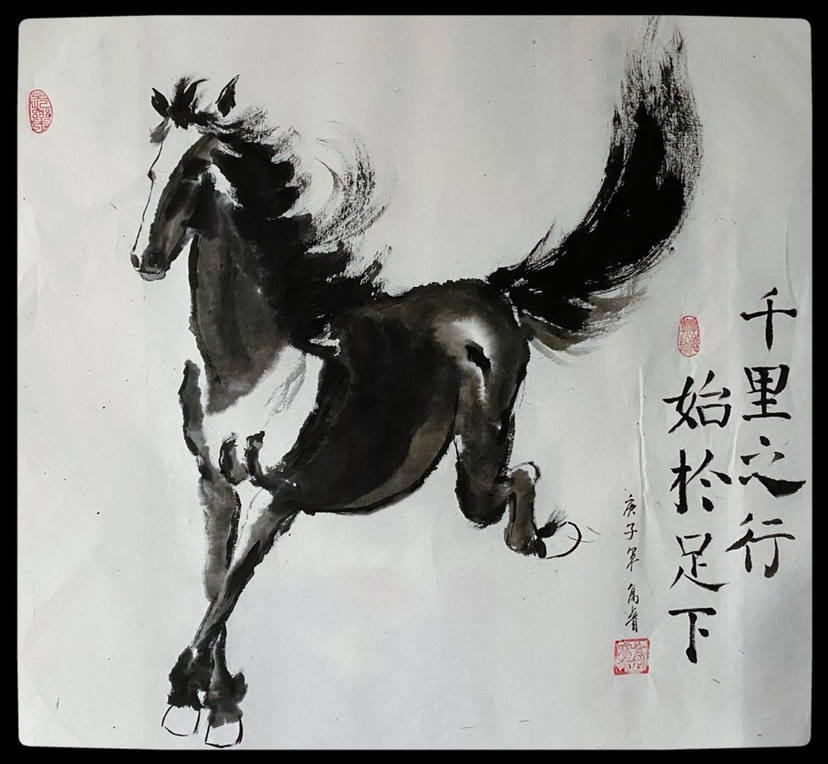 千里之行
始於足下
庚子年